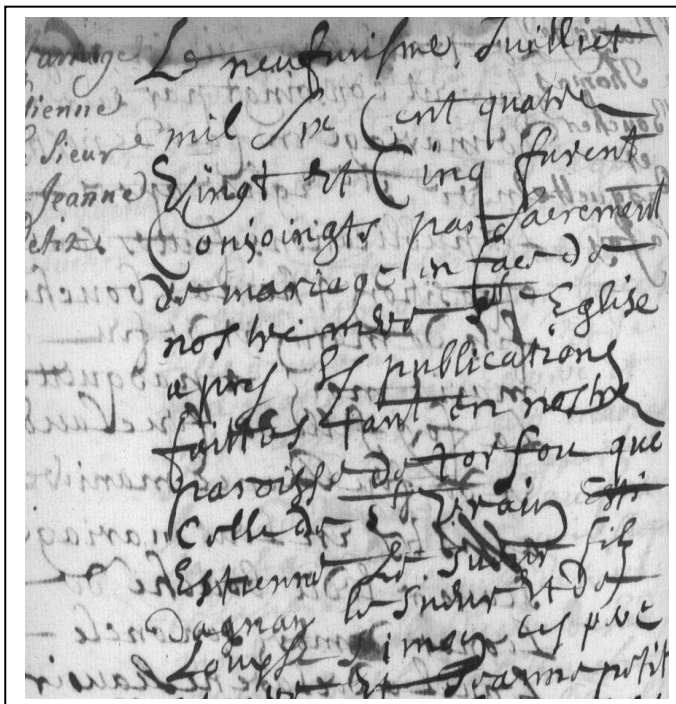 mariage
tienne
Sieur
Jeanne
etit
Le neufviesme Juilliet
mil six Cent quatre
Vingt et Cinq furent
Conjoingts par sacrement
de mariage in face de
nostre mere Ste Eglise
apres les publications
faittes tant en nostre
paroisse de torfou que
Celle de St Vrain
Estienne le sueur fils
dagnan le sueur et de
Louyse Simon ses pere
Et Jeanne petit